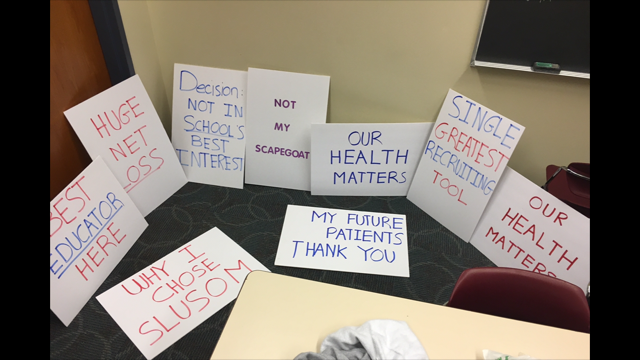 HUGE
NET
LOSS
Decision:
NOT IN
SCHOOL'S
BEST
INTEREST
NOT
MY
SCAPEGOAT
OUR
HEALTH
MATTERS
SINGLE
GREATEST
RECRUITING
TOOL
OUR
HEALTH
MATTERS
BEST
EDUCATOR
HERE
MY FUTURE
PATIENTS
THANK YOU
WHY I
CHOSE
SLUSOM